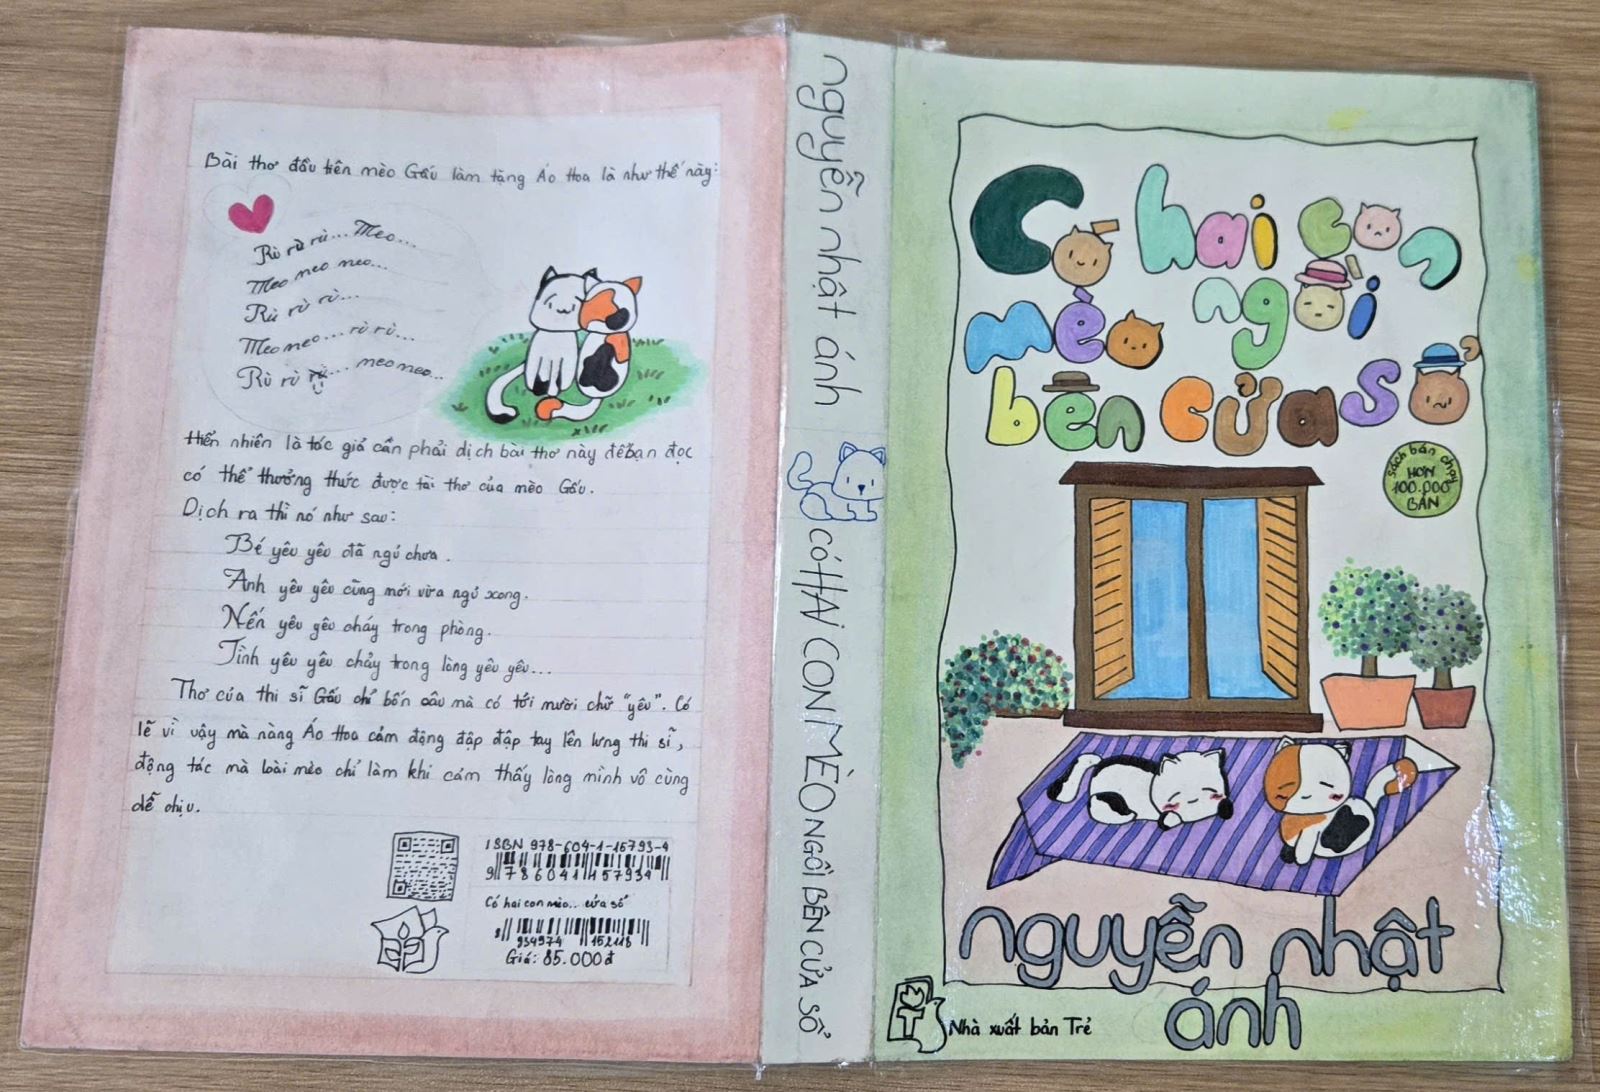 Bài thơ đầu tiên mèo Gấu làm tặng Áo Hoa là như thế này:
Rù rù rù... Meo...
Meo meo meo...
Rù rù rù...
Meo meo... rù rù...
Rù rù rù... meo meo...
Hiển nhiên là tác giả cần phải dịch bài thơ này để bạn đọc
có thể thưởng thức được tài thơ của mèo Gấu.
Dịch ra thì nó như sau:
Bé yêu yêu đã ngủ chưa.
Anh yêu yêu cũng mới vừa ngủ xong.
Nến yêu yêu cháy trong phòng.
Tình yêu yêu chảy trong lòng yêu yêu...
Thơ của thi sĩ Gấu chỉ bốn câu mà có tới mười chữ "yêu". Có
lẽ vì vậy mà nàng Áo Hoa cảm động đập đập tay lên lưng thi sĩ,
động tác mà loài mèo chỉ làm khi cảm thấy lòng mình vô cùng
dễ chịu.
ISBN 978-604-1-15793-4
9 786041 157934
Có hai con mèo... cửa sổ
8 934974 152118
Giá: 85.000đ
nguyễn nhật ánh
CÓ HAI CON MÈO NGỒI BÊN CỬA SỔ
Có hai con
mèo ngồi
bên cửa sổ
sách bán chạy
HƠN
100.000
BẢN
nguyễn nhật
ánh
T
Nhà xuất bản Trẻ